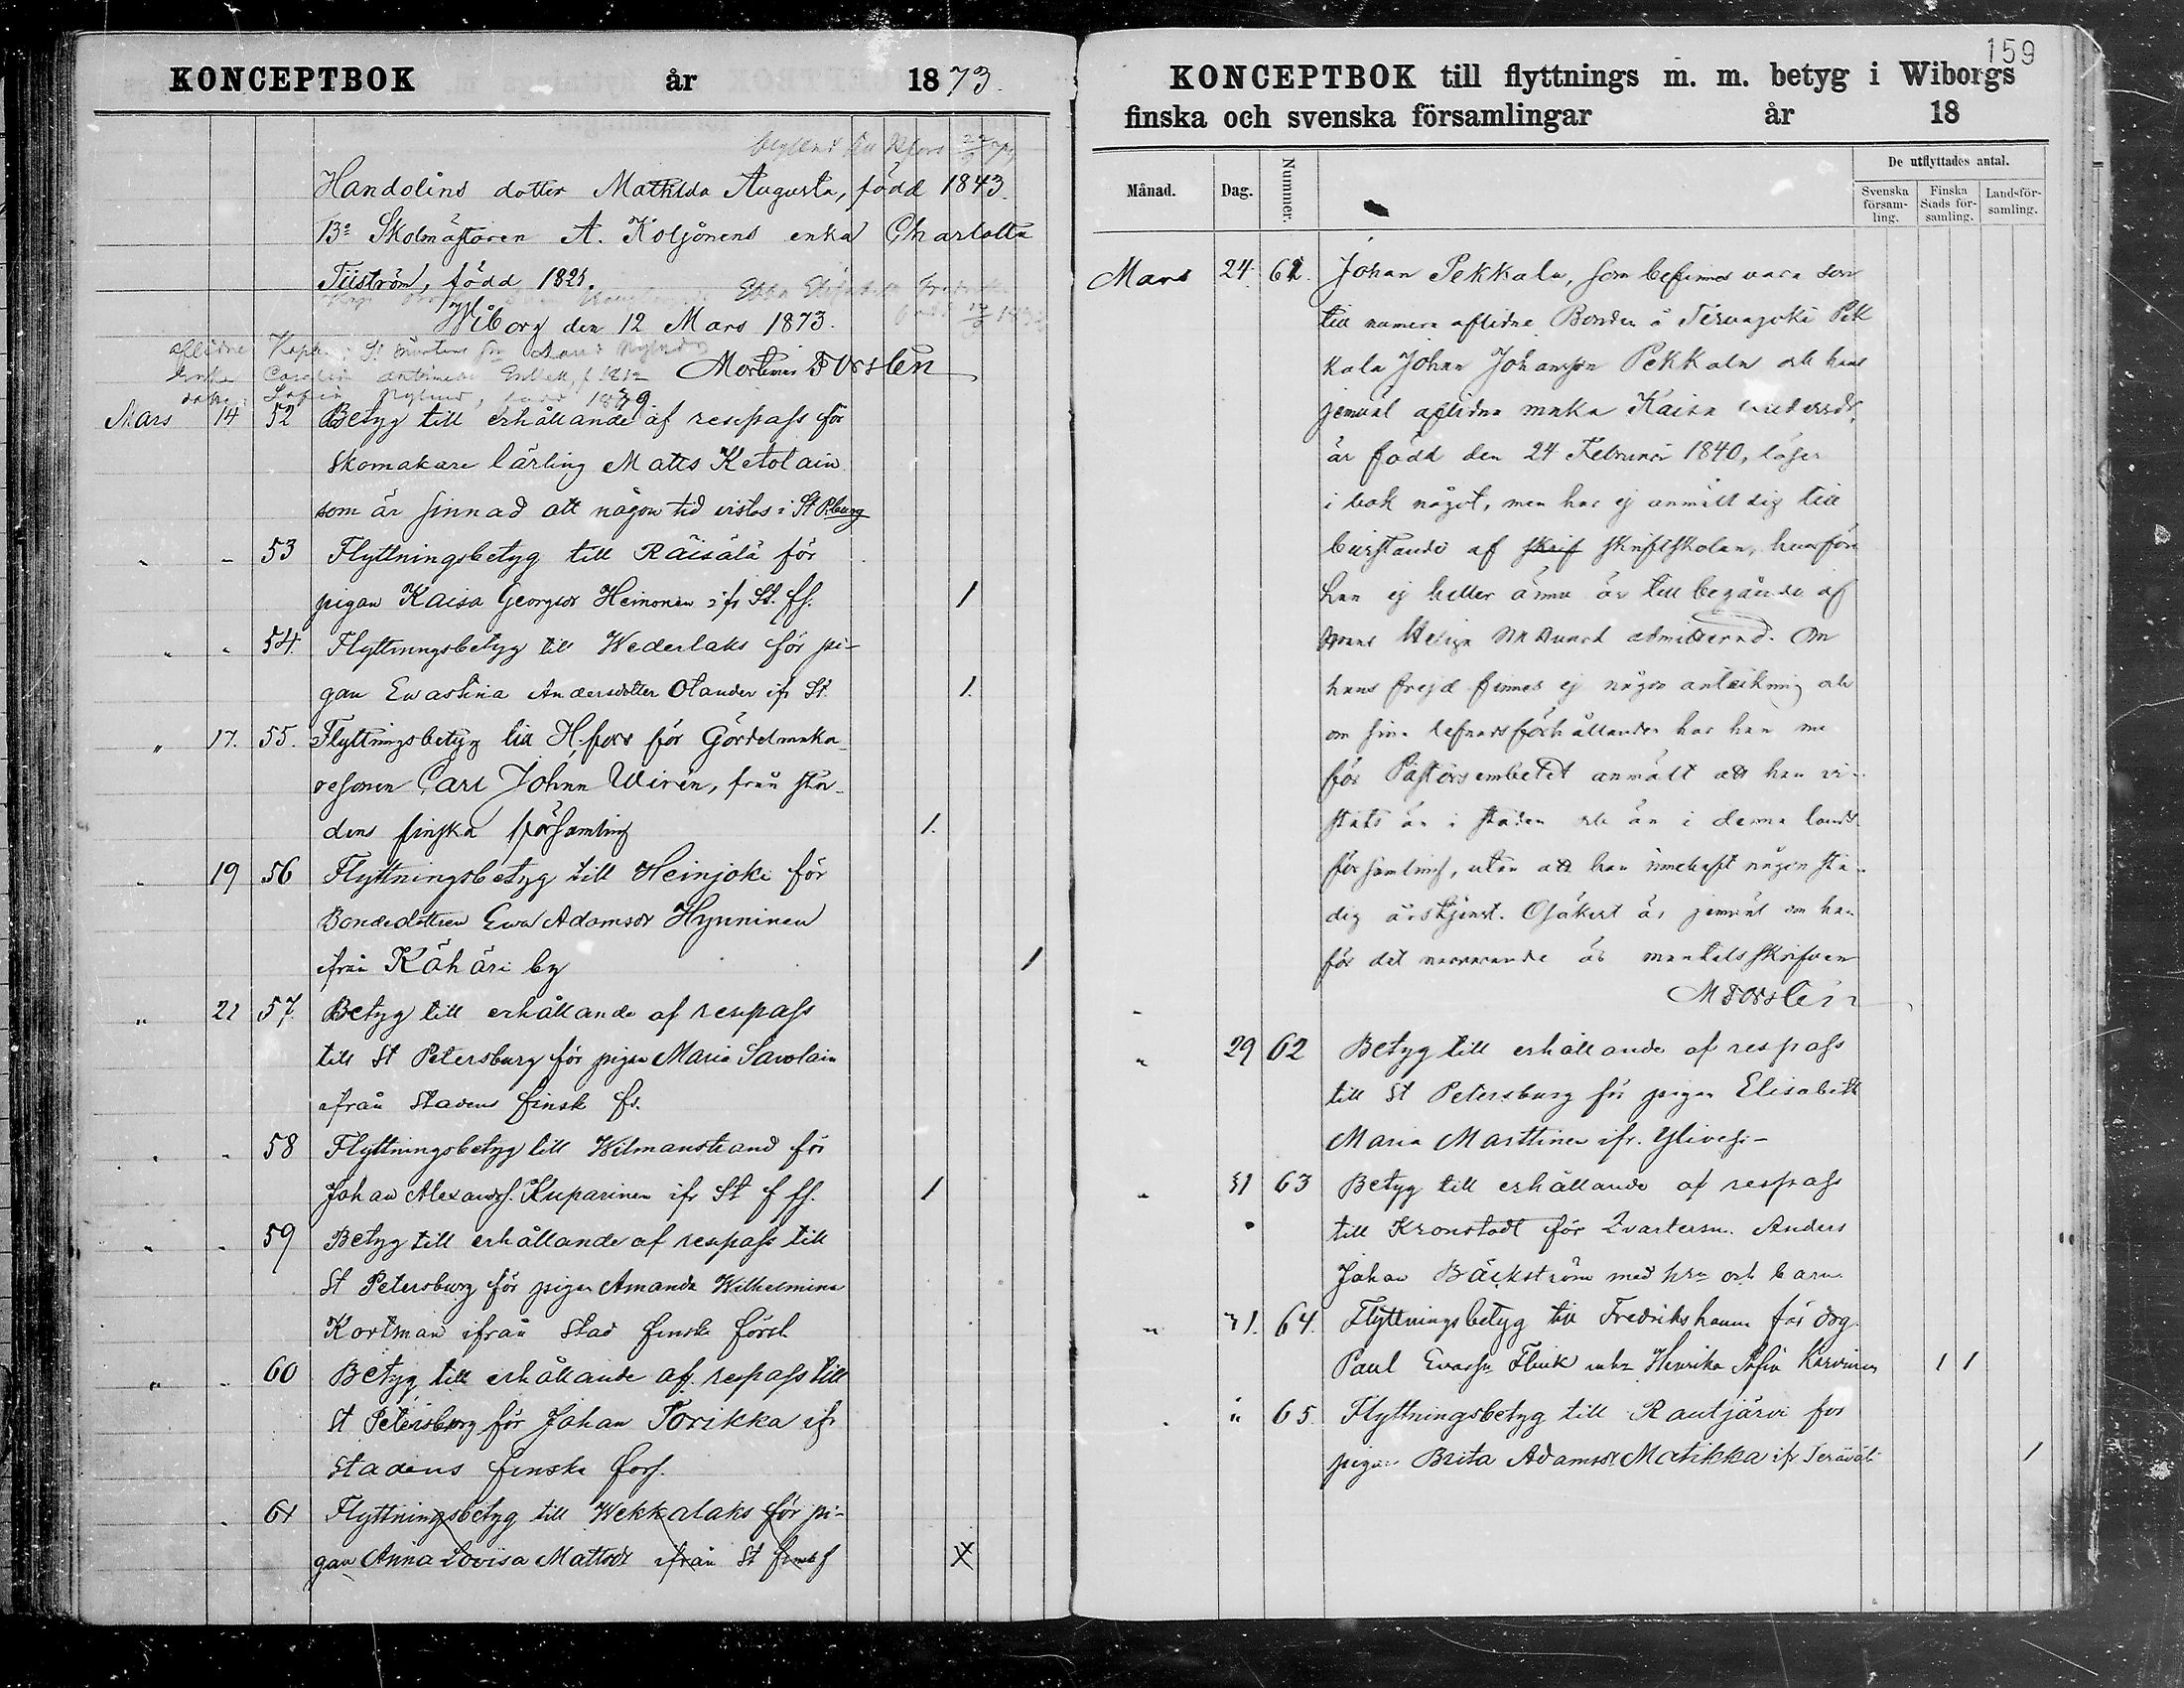 KONCEPTBOK år 1873.
Handolins dotter Mathilda Augusta, född 1843.
Bo Skolmästaren A. Koljonens enka Charlotta
Tiiström, född 1821.
Wiborg den 12 Mars 1873.
aflidne Kapl. i St
enka Carolin f 1812
dotter Sofia Nylund, född 1839
Mortimer Forslén
Mars 14 52 Betyg till erhållande af respass för
Skomakare lärling Matts Ketolain
som är sinnad att någon tid vistas i St Pburg
" - 53 Flyttningsbetyg till Räisälä för
pigan Kaisa Georgsdr Heinonen ifr St. ff. 1
" " 54. Flyttningsbetyg till Wederlaks för pi-
gan Ewastina Andersdotter Olander ifr St. 1.
" 17. 55. Flyttningsbetyg till H.fors för Gördelmaka-
resonen Carl Johan Wirén, från sta-
dens finska församling 1.
" 19 56 Flyttningsbetyg till Heinjoki för
Bondedottren Ewa Adamsdr Hynninen
ifrån Kähäri by 1
" 21 57. Betyg till erhållande af respass
till St Petersburg för pigan Maria Savolain
ifrån Stadens finsk fs.
" - 58 Flyttningsbetyg till Wilmanstrand för
Johan Alexandss. Kuparinen ifr St f ff. 1
" - 59 Betyg till erhållande af respass till
St Petersburg för pigan Amanda Wilhelmina
Kortman ifrån Stad finska förs.
" - 60 Betyg till erhållande af respass till
St Petersburg för Johan Torikka ifr
Stadens finska förs.
- 61 Flyttningsbetyg till Wekkalaks för pi-
gan Anna Lovisa Mattsdr ifrån St finsk f X
159
KONCEPTBOK till flyttnings m. m. betyg i Wiborgs
finska och svenska församlingar år 18
Månad. Dag. Nummer. De utflyttades antal.
Svenska församling. Finska Stads församling. Landsförsamling.
Mars 24. 61. Johan Pekkala, som befinnes vara son
till numera aflidne Bonden å Tervajoki Pek
kala Johan Johansson Pekkala och hans
jemväl aflidna maka Kaisa Andersdr,
är född den 24 Februari 1840, läser
i bok något, men har ej anmält sig till
bevistande af skrif skriftskolan, hvarföre
han ej heller ännu är till begående af
Herrans Heliga Nattvard admitterad. Om
hans frejd finnes ej någon anteckning och
om sina lefnadsförhållanden har han in-
för Pastorsembetet anmält att han vi-
stats än i staden och än i denna lands
församling, utan att han innehaft någon stä-
dig årstjenst. Osäkert är jemväl om han
för det närvarande är mantalsskrifven
M Forslén
" 29 62 Betyg till erhållande af respass
till St Petersburg för pigan Elisabeth
Maria Marttinen ifr. Ylivesi-
" 31 63 Betyg till erhållande af respass
till Kronstadt för Qvarterm. Anders
Johan Bäckström med hu och barn.
" 31. 64. Flyttningsbetyg till Fredrikshamn för drg.
Paul Evasson Flink Henrika Sofia Karvinen 1 1
. " 65. Flyttningsbetyg till Rautjärvi för
pigan Brita Adamsdr Matikka ifr Terävälä 1